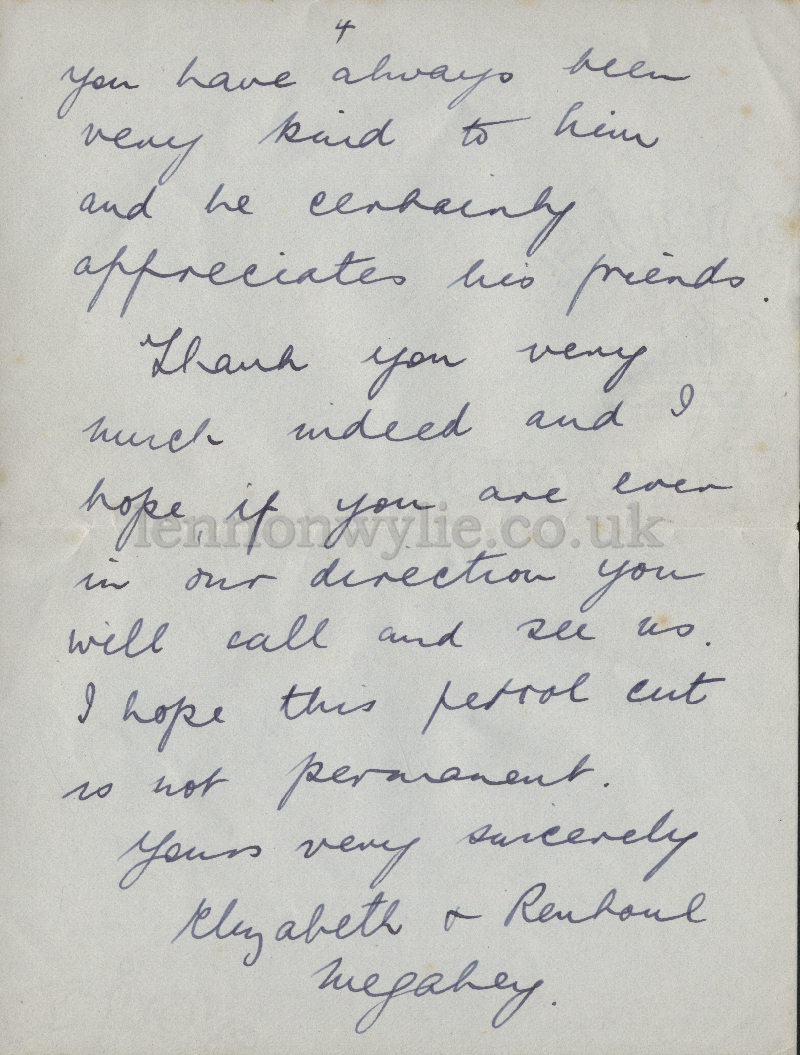 4
you have always been
very kind to him
and he certainly
appreciates his friends.
Thank you very
much indeed and I
hope if you are ever
lennonwylie.co.uk
in our direction you
will call and see us.
I hope this petrol cut
is not permanent.
Yours very sincerely
Elizabeth & Rentoul
Megahey.